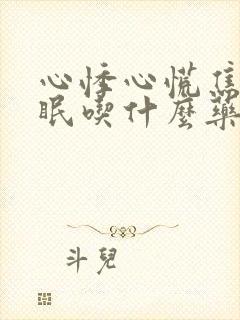 心悸心慌焦
眠喫什麼藥
斗兒